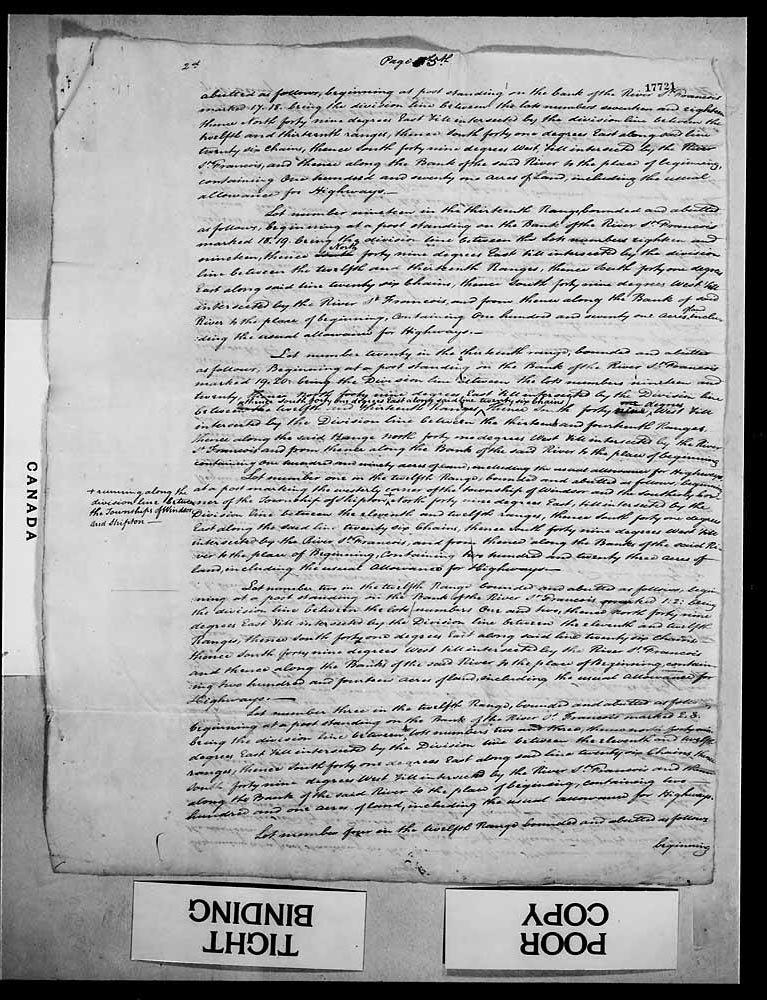 2d Page 5th
17721
abutted as follows, beginning at post standing on the bank of the River St. Francois
marked 17.18. being the division line between the lots numbers seventeen and eighteen
thence North forty nine degrees East till intersected by the division line between the
twelfth and thirteenth ranges, thence South forty one degrees East along said line
twenty six chains, thence South forty nine degrees West, till intersected by the River
St. Francois, and thence along the Bank of the said River to the place of beginning,
containing One hundred and twenty one acres of land, including the usual
allowance for Highways.—
Lot number nineteen in the thirteenth Range, bounded and abutted
as follows, beginning at a post standing on the Bank of the River St. Francois
marked 18.19. being the division line between the Lots numbers eighteen and
North
nineteen, thence forty nine degrees East till intersected by the division
line between the twelfth and thirteenth Ranges, thence South forty one degrees
East along said line twenty six Chains, thence South forty nine degrees West till
intersected by the River St. Francois, and from thence along the Bank of said
River to the place of beginning, Containing One hundred and seventy one acres, inclu-
ding the usual allowance for Highways.—
Lot number twenty in the thirteenth range, bounded and abutted
as follows, Beginning at a post standing on the Bank of the River St. Francois
marked 19,20. being the Division line between the lots numbers nineteen and
twenty, thence North forty nine degrees East till intersected by the Division line
thence South forty one degrees East along said line twenty six chains one degrees
between the twelfth and thirteenth Ranges, thence South forty West till
intersected by the Division line between the thirteenth and fourteenth Ranges
thence along the said Range North forty one degrees West till intersected by the River
St. Francois and from thence along the Bank of the said River to the place of beginning
containing one hundred and ninety acres of land, including the usual allowance for Highways
Lot number one in the twelfth Range, bounded and abutted as follows, beginning
+ running along the
division line between
the Townships of Windsor
and Shipton —
at a post marking the westerly corner of the township of Windsor and the southerly cor-
ner of the Township of Shipton, + North forty nine degrees East, till intersected by the
Division line between the eleventh and twelfth ranges, thence South forty one degrees
East along the said line twenty six Chains, thence South forty nine degrees West till
intersected by the River St. Francois, and from thence along the Bank of the said Ri-
ver to the place of Beginning, Containing two hundred and twenty three acres of
land, including the usual Allowance for Highways.—
Lot number two in the twelfth Range bounded and abutted as follows, begin-
ning at a post standing on the Bank of the River St. Francois marked 1.2: being
the division line between the lots numbers One and two, thence North forty nine
degrees East till intersected by the Division line between the eleventh and twelfth
Ranges, thence South forty one degrees East along said line twenty six Chains
thence South forty nine degrees West till intersected by the River St. Francois
and thence along the Banks of the said River to the place of Beginning, contain-
ing two hundred and fourteen acres of land, including the usual allowance for
Highways.—
Lot number three in the twelfth Range, bounded and abutted as follows
beginning at a post standing on the Bank of the River St. Francois marked 2.3.
being the division line between lots numbers two and three, thence north forty nine
degrees, East till intersected by the Division line between the eleventh and twelfth
ranges, thence South forty one degrees East along said line twenty six Chains, thence
South forty nine degrees West till intersected by the River St. Francois and thence
along the Bank of the said River to the place of beginning, containing two
hundred and one acres of land, including the usual allowance for Highways.
Lot number four in the twelfth Range bounded and abutted as follows
beginning
CANADA
TIGHT
BINDING
POOR
COPY